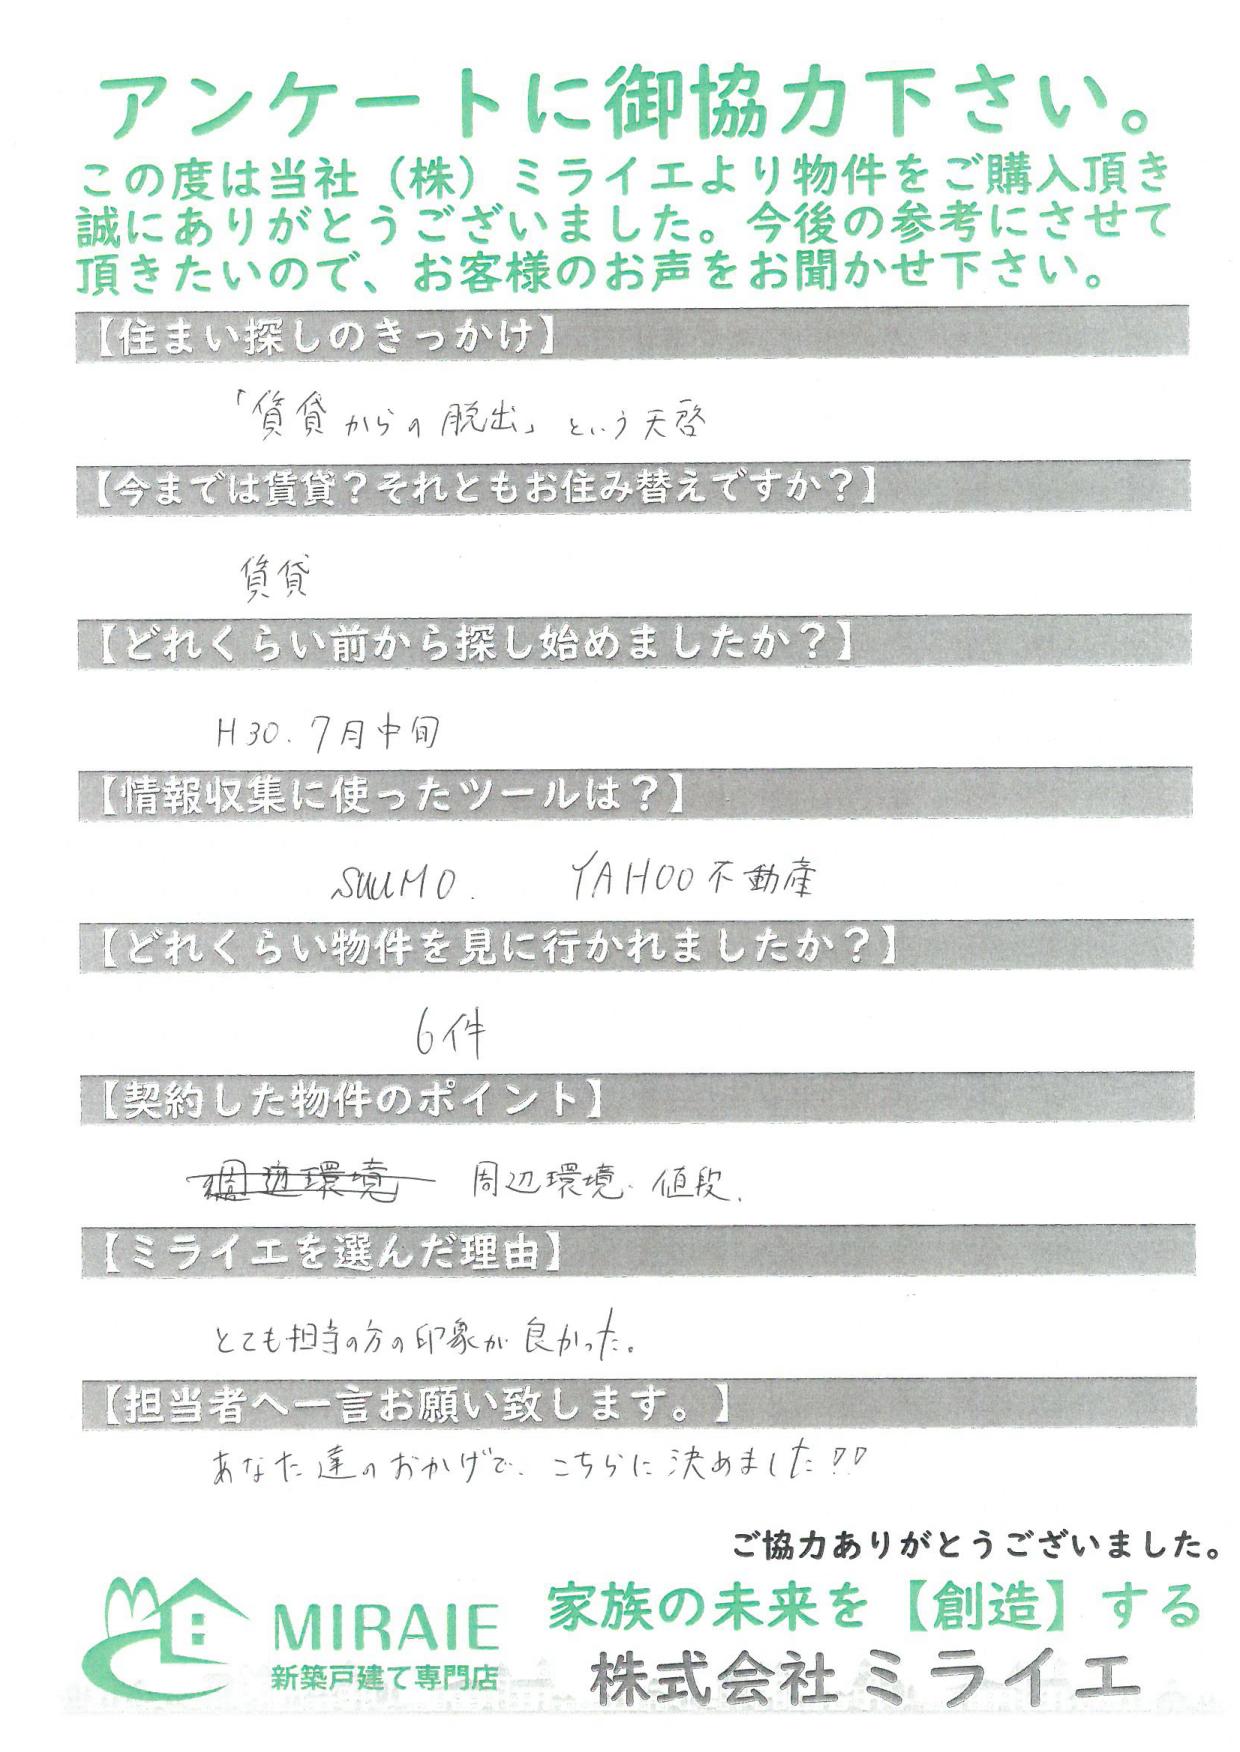 アンケートに御協力下さい。
この度は当社（株）ミライエより物件をご購入頂き
誠にありがとうございました。今後の参考にさせて
頂きたいので、お客様のお声をお聞かせ下さい。
【住まい探しのきっかけ】
「賃貸からの脱出」という天啓
【今までは賃貸？それともお住み替えですか？】
賃貸
【どれくらい前から探し始めましたか？】
H30.7月中旬
【情報収集に使ったツールは？】
SUUMO. YAHOO不動産
【どれくらい物件を見に行かれましたか？】
6件
【契約した物件のポイント】
周辺環境 周辺環境、値段.
【ミライエを選んだ理由】
とても担当の方の印象が良かった。
【担当者へ一言お願い致します。】
あなた達のおかげで、こちらに決めました!!
ご協力ありがとうございました。
MIRAIE
新築戸建て専門店
家族の未来を【創造】する
株式会社ミライエ